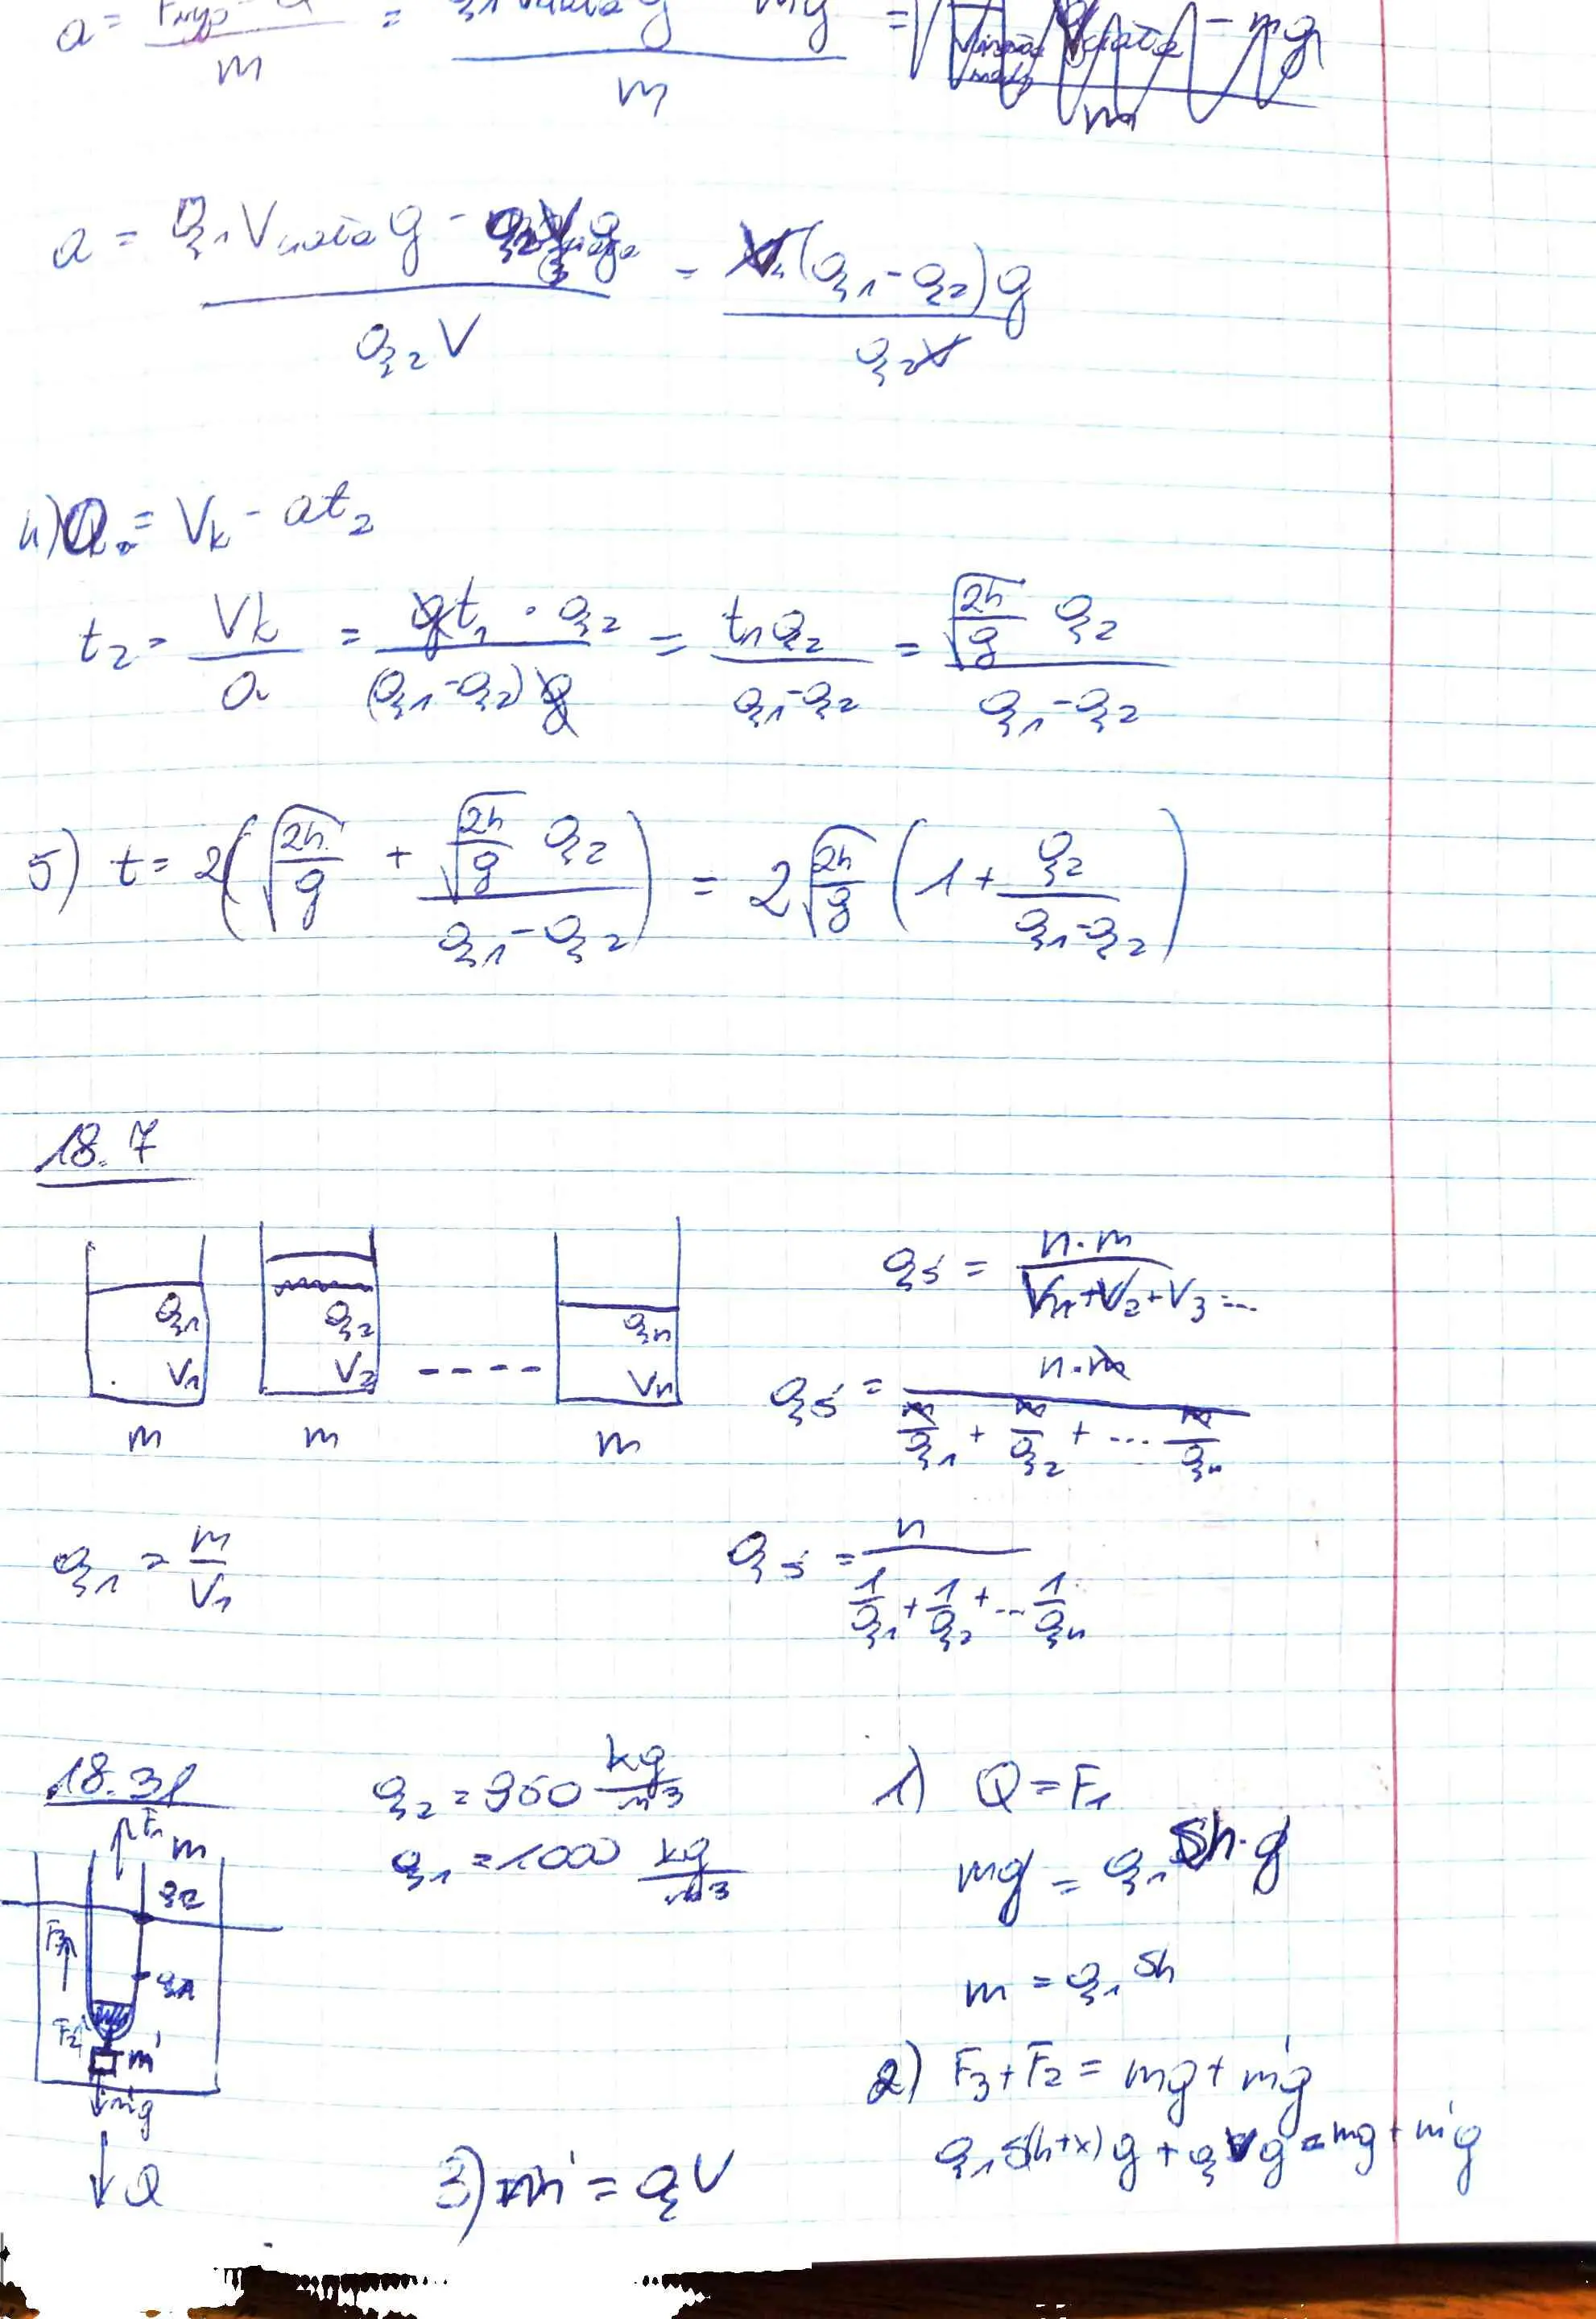 a = (F wyp - Q)/m = (ρ₁ V ciała g - mg)/m =
a = (ρ₁ V ciała g - ρ₂ V g)/(ρ₂ V) = V(ρ₁ - ρ₂)g/(ρ₂ V)
4) 0 = Vk - at₂
t₂ = Vk/a = (gt₁ · ρ₂)/((ρ₁ - ρ₂)g) = t₁ρ₂/(ρ₁ - ρ₂) = (√(2h/g) ρ₂)/(ρ₁ - ρ₂)
5) t = 2(√(2h/g) + (√(2h/g) ρ₂)/(ρ₁ - ρ₂)) = 2√(2h/g) (1 + ρ₂/(ρ₁ - ρ₂))
18.7
ρ₁ V₁ m
ρ₂ V₂ m
----
ρn Vn m
ρś = (n·m)/(V₁ + V₂ + V₃ ...
ρś = (n·m)/(m/ρ₁ + m/ρ₂ + ... m/ρn)
ρ₁ = m/V₁
ρś = n/(1/ρ₁ + 1/ρ₂ + ... 1/ρn)
18.31
ρ₂ = 950 kg/m³
ρ₁ = 1000 kg/m³
F₁ m
ρ₂
F₃
ρ₁
F₂
m'
m'g
Q
1) Q = F₁
mg = ρ₁ Sh·g
m = ρ₁ Sh
2) F₃ + F₂ = mg + m'g
ρ₁S(h+x)g + ρVg = mg + m'g
3) m' = ρV